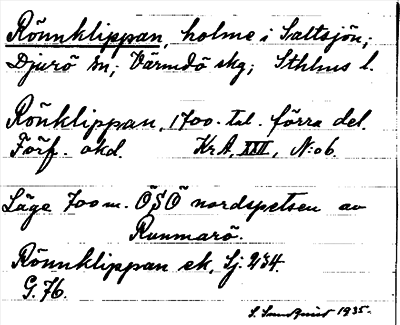 Rönnklippan, holme i Saltsjön;
Djurö sn; Värmdö skg; Sthlms l.
Rönklippan, 1700-tal. förra del.
Förf. okd. KrA, XXII, N:o 6.
Läge 700 m. ÖSÖ nordspetsen av
Runmarö.
Rönnklippan ek. Sj. 234.
G. 76.
S. Sundquist 1935.